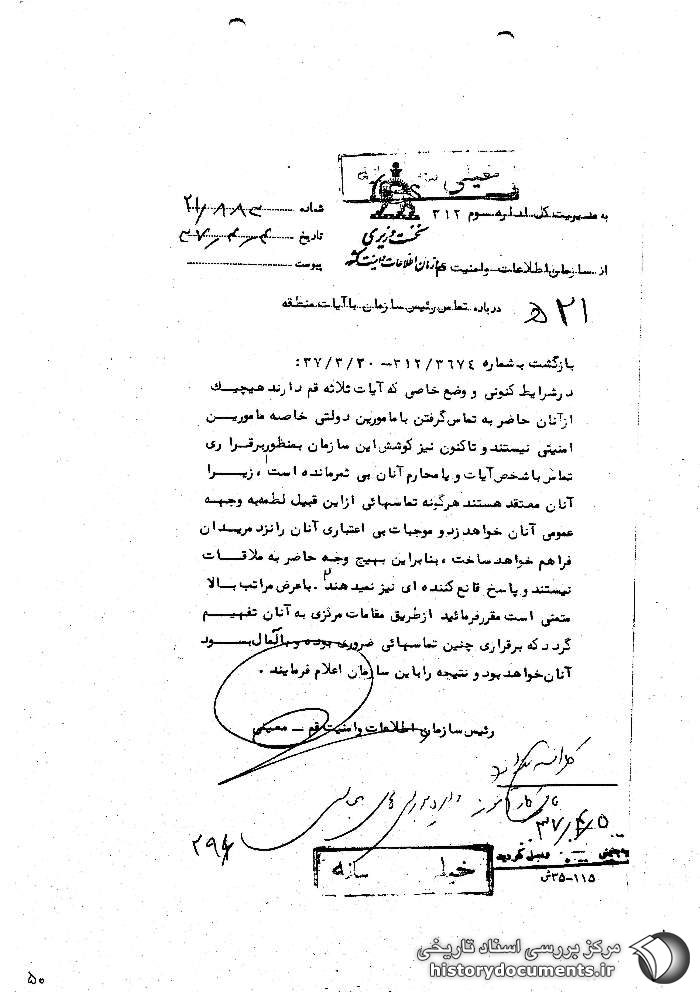 خیلی محرمانه
به مدیریت کل اداره سوم ۳۱۲
شماره ۲۱/۸۸۳
نخست وزیری
تاریخ ۳۷/۴/۴
از سازمان اطلاعات و امنیت قم
سازمان اطلاعات و امنیت کشور
پیوست
درباره تماس رئیس سازمان با آیات منطقه
۲۱ ه
بازگشت به شماره ۳۱۲/۳۶۷۴ – ۳۷/۳/۳۰ :
در شرایط کنونی و وضع خاصی که آیات ثلاثه قم دارند هیچیك
از آنان حاضر به تماس گرفتن با مامورین دولتی خاصه مامورین
امنیتی نیستند و تاکنون نیز کوشش این سازمان بمنظور برقراری
تماس با شخص آیات و یا محارم آنان بی ثمر مانده است، زیرا
آنان معتقد هستند هرگونه تماسهائی از این قبیل لطمه به وجهه
عمومی آنان خواهد زد و موجبات بی اعتباری آنان را نزد مریدان
فراهم خواهد ساخت، بنابراین بهیچ وجه حاضر به ملاقات
نیستند و پاسخ قانع کننده ای نیز نمیدهند. با عرض مراتب بالا
متمنی است مقرر فرمائید از طریق مقامات مرکزی به آنان تفهیم
گردد که برقراری چنین تماسهائی ضروری بوده و بالمآل بسود
آنان خواهد بود و نتیجه را باین سازمان اعلام فرمایند.
رئیس سازمان اطلاعات و امنیت قم – معینی
۳۷/۴/۵
۲۹۴
۱۱۵–۳۵ش
مرکز بررسی اسناد تاریخی
historydocuments.ir
۵۰